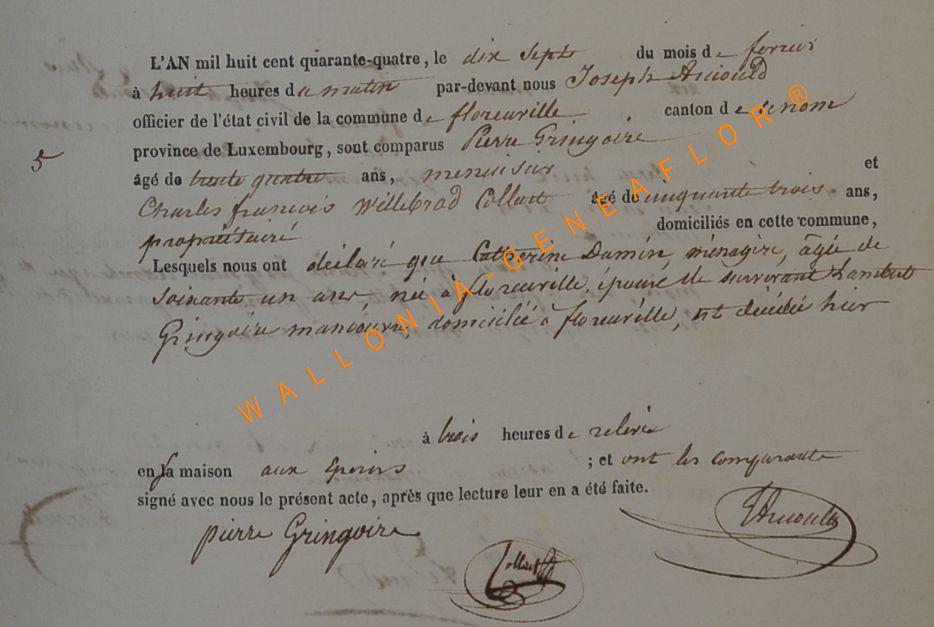 L'AN mil huit cent quarante-quatre, le dix sept du mois de fevrier
à huit heures du matin par-devant nous Joseph Arnould
officier de l'état civil de la commune de florenville canton de ce nom
5
province de Luxembourg, sont comparus Pierre Gringoire
âgé de trente quatre ans, menuisier et
Charles françois Willebrad Collart âgé de cinquante trois ans,
propriétaire domiciliés en cette commune,
Lesquels nous ont déclaré que Catherine Damin, ménagère, âgée de
soixante un ans, née à florenville, épouse de survivant Lambert
Gringoire manœuvre, domicilié à florenville, est décédée hier
à trois heures de relevée
en sa maison aux ; et ont les comparants
signé avec nous le présent acte, après que lecture leur en a été faite.
pierre Gringoire
Collart
Arnould
WALLONIA-GENEAFLOR ®